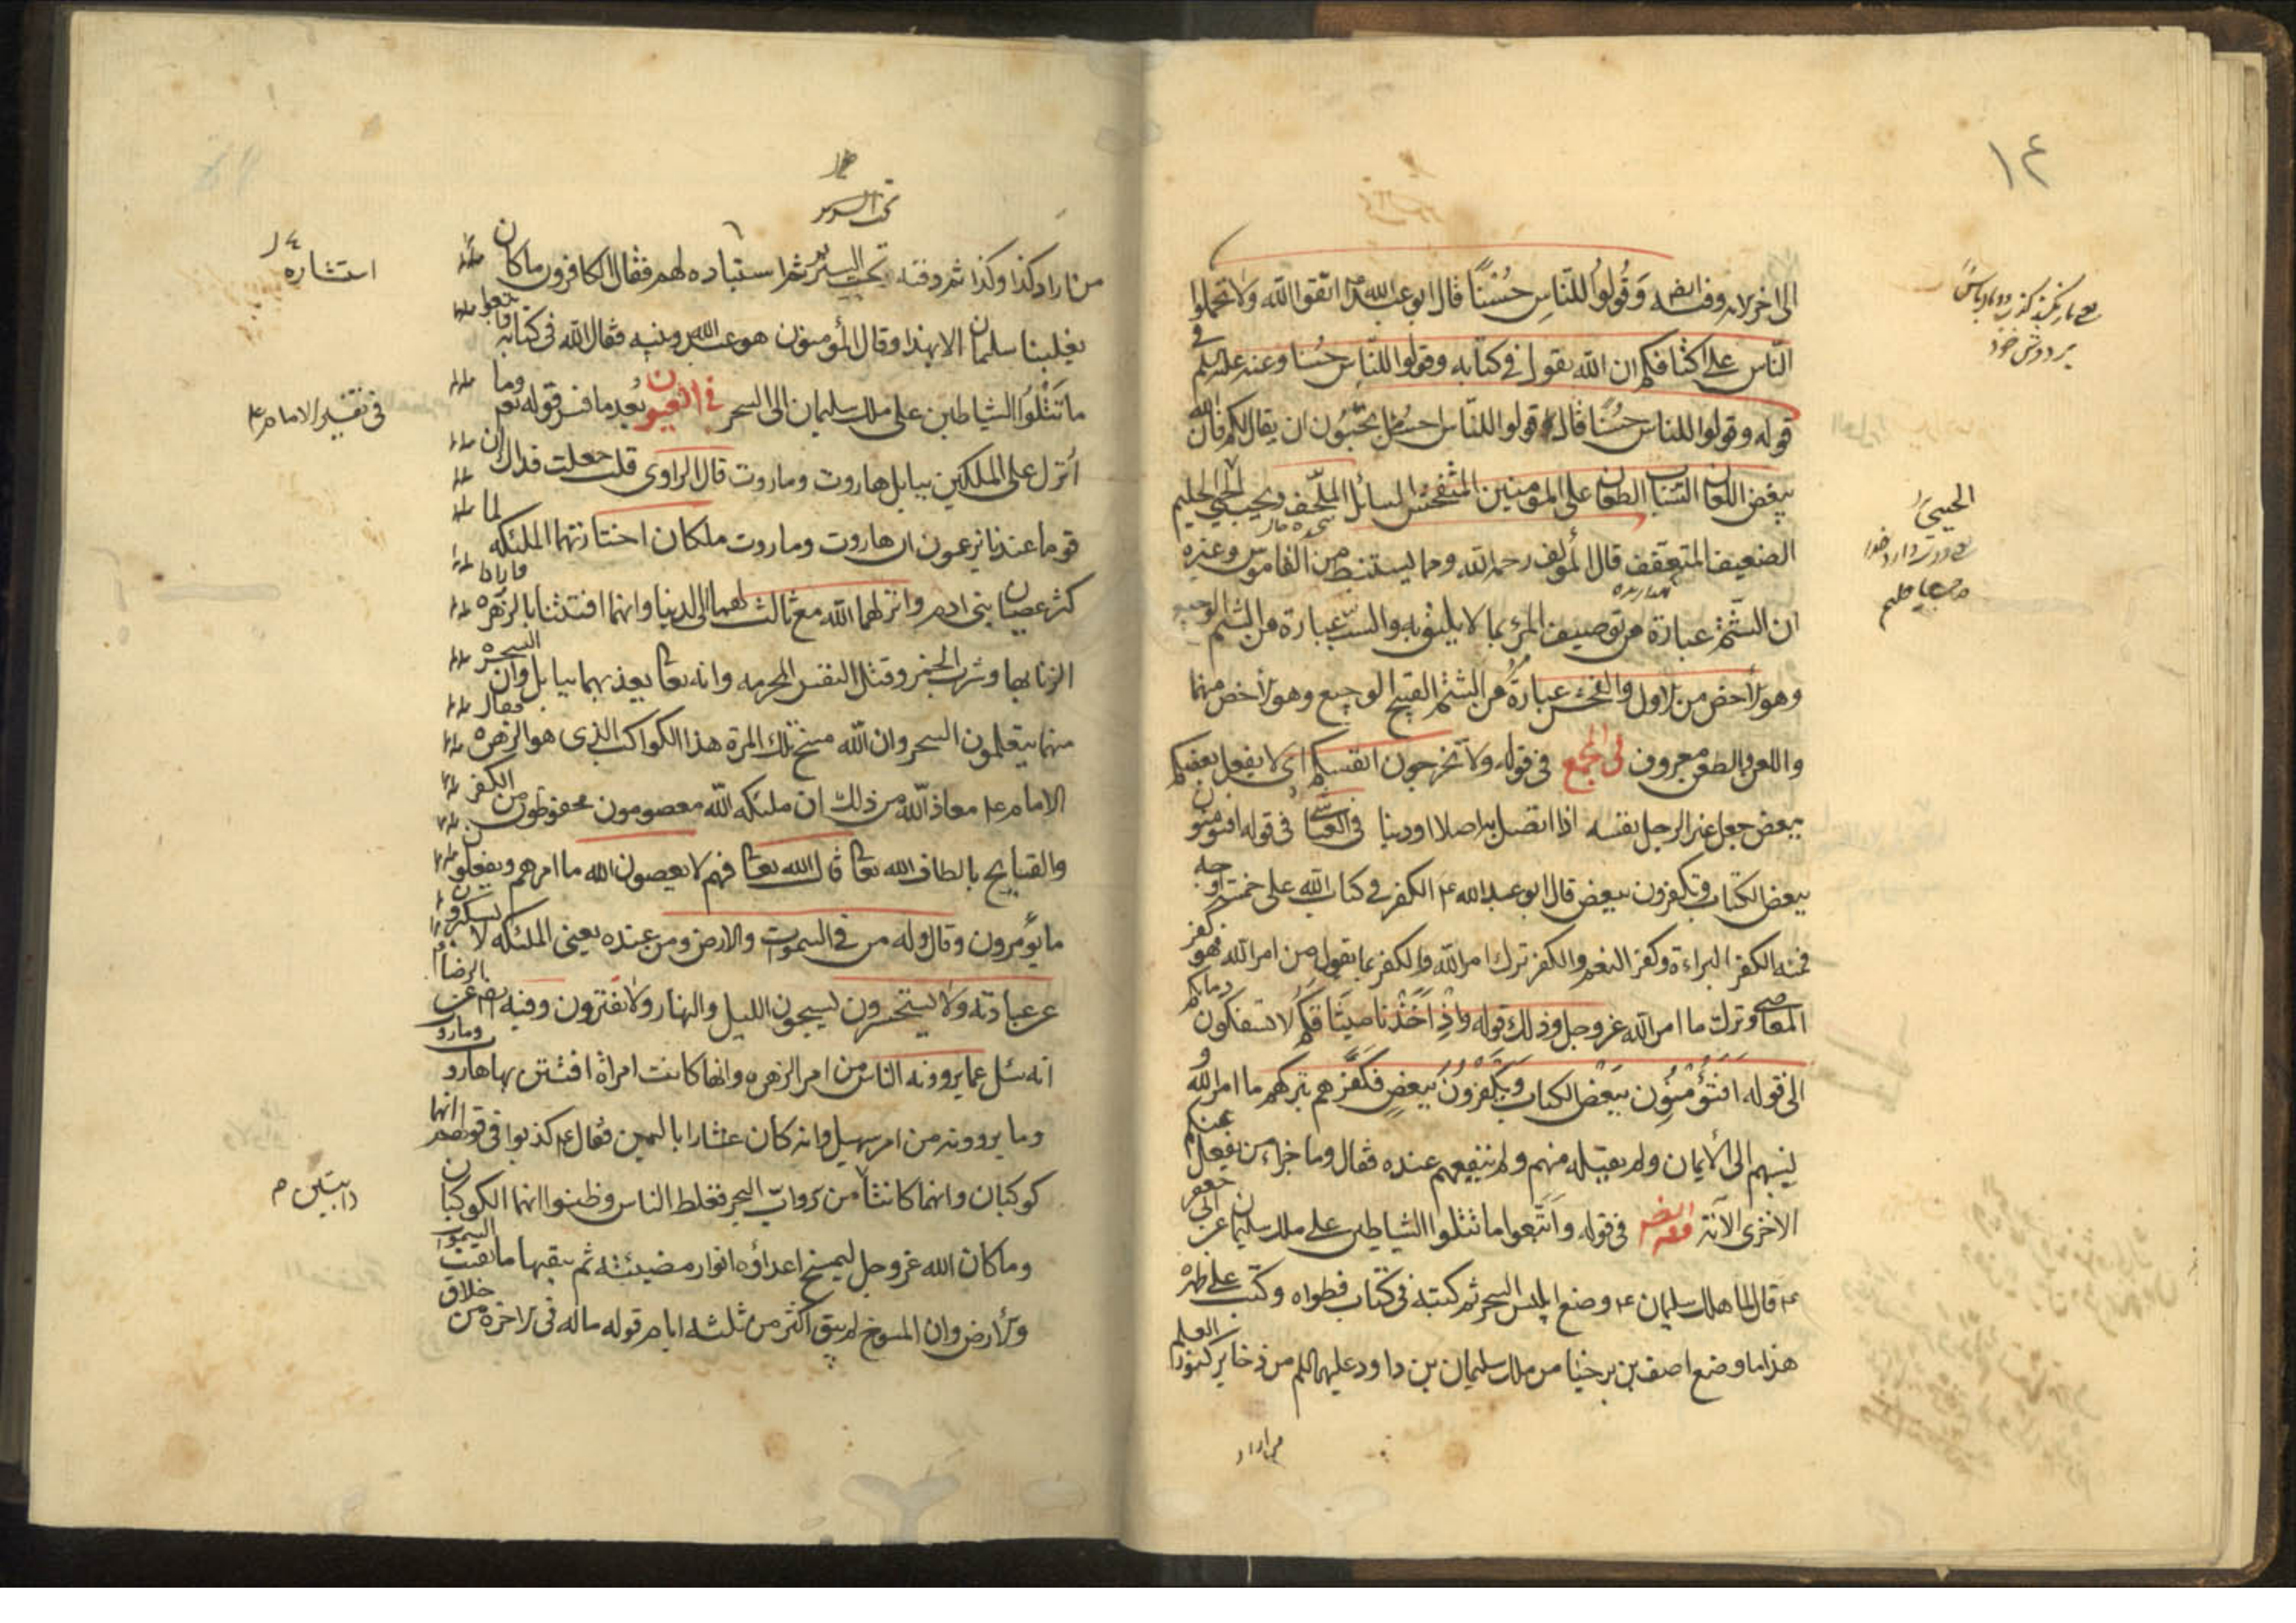 ١٤
الى اخر الآية وفيه ايضا وَقُولُوا لِلنَّاسِ حُسْنًا قال ابو عبد الله ع اتقوا الله ولا تحملوا
النّاس على اكتافكم ان الله يقول في كتابه وقولوا للنّاس حُسنا وعنه عليه السلم في
قوله وقولوا للناس حسنًا قال قولوا للنّاس احسن ما تحبّون ان يقال لكم فان الله
يبغض اللعان السّبّاب الطعان على المؤمنين المتفحّش السائل الملحف ويحبّ الحيي الحليم
الضعيف المتعفف قال المؤلف رحمه الله ومما يستنبط من القاموس وغيره
ان الشتم عبارة من توصيف المرء بما لا يليق به والسبّ عبارة من الشتم الوجيع
وهو أخص من الاول والفحش عبارة من الشتم القبيح الوجيع وهو أخص منهما
واللعن والطعن معروف في المجمع في قوله ولا تخرجون انفسكم اى لا يفعل بعضكم
ببعض جعل غير الرجل نفسه اذا اتصل به اصلا او دينا في العيّاشى في قوله افتؤمنون
ببعض الكتاب وتكفرون ببعض قال ابو عبد الله ع الكفر في كتاب الله على خمسة اوجه
فمنه الكفر البراءة وكفر النعم والكفر بترك امر الله والكفر بما يقول من امر الله فهو كفر
المعاصى وترك ما امر الله عز وجل وذلك قوله وَاِذْ اَخَذْنا ميثاقكم لا تسفكون دماءكم
الى قوله افتؤمنون ببعض الكتاب وتكفرون ببعض فكفّرهم بتركهم ما امر الله و
نسبهم الى الايمان ولم يقبله منهم ولم ينفعهم عنده فقال وما جزاء من يفعل منكم
الاخرى الآية وفيه ايضا في قوله واتّبعوا ما تتلوا الشياطين على ملك سليمان عن ابي جعفر
ع قال لما هلك سليمان ع وضع ابليس السحر ثم كتبه في كتاب فطواه وكتب على ظهره
هذا ما وضع اصف بن برخيا من ملك سليمان بن داود عليهما السلم من ذخاير كنوز العلم
من اراد
الحيي
من اراد كذا وكذا ثم دفنه تحت السرير ثم استثاره لهم فقال الكافرون ما كان
يغلبنا سليمان الا بهذا وقال المؤمنون هو عبد الله ونبيه فقال الله في كتابه واتبعوا
ما تَتْلُوا الشياطين على ملك سليمان الى السحر في العيون بعد ما فسر قوله تعم وما
اُنزل على الملكين ببابل هاروت وماروت قال الراوى قلت جعلت فداك ان
قوما عندنا يزعمون ان هاروت وماروت ملكان اختارتهما الملئكة لما
كثر عصيان بنى ادم وانزلهما الله مع ثالث لهما الى الدنيا وانهما افتتنا بالزهرة وارادا
الزنا بها وشرب الخمر وقتل النفس المحرمة وانه تعا يعذبهما ببابل وان السحرة
منهما يتعلمون السحر وان الله مسخ تلك المرة هذا الكواكب الذى هو الزهرة فقال
الامام ع معاذ الله من ذلك ان ملئكة الله معصومون محفوظون من الكفر
والقبايح بالطاف الله تعا قال الله تعا فهم لا يعصون الله ما امرهم ويفعلون
ما يؤمرون وقال وله من في السموات والارض ومن عنده يعنى الملئكة لا يستكبرون
عن عبادته ولا يستحسرون يسبحون الليل والنهار ولا يفترون وفيه ايضا عن الرضا ع
انه سئل عما يروونه الناس من امر الزهرة وانها كانت امراة افتتن بها هاروت وماروت
وما يروونه من امر سهيل وانه كان عشارا باليمن فقال ع كذبوا في قولهم انهما
كوكبان وانما كانتا من دوابّ البحر فغلط الناس وظنوا انهما الكوكبان
وما كان الله عز وجل ليمسخ اعداؤه انوار مضيئة ثم يبقيها ما بقيت السموات
والارض وان المسوخ لم يبق اكثر من ثلثة ايام قوله ما له في الاخرة من خلاق
تحت السرير
استثاره
في تفسير الامام ع
دابتين م